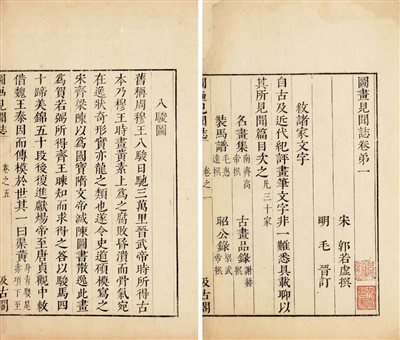 圖畫見聞誌卷第一
宋 郭若虛撰
明 毛晉訂
敘諸家文字
自古及近代紀評畫筆文字非一難悉具載聊以
其所見聞篇目次之 凡三十家
名畫集 南齊高帝撰 古畫品錄 謝赫撰
裝馬譜 毛惠遠撰 昭公錄 梁武帝撰
圖畫見聞志 卷之一
八駿圖
舊稱周穆王八駿日馳三萬里晉武帝時所得古
本乃穆王時畫黃素上為之腐敗昏潰而骨氣宛
在逸狀奇形實亦龍之類也遂令史道碩模寫之
宋齊梁陳以為國寶隋文帝滅陳圖書散逸此畫
為賀若弼所得齊王暕知而求得之答以駿馬四
十蹄美錦五十段後復進獻煬帝至唐貞觀中敕
借魏王泰因而傳模於世其一曰渠黃 赤項下至
圖畫見聞誌 卷之五 汲古閣